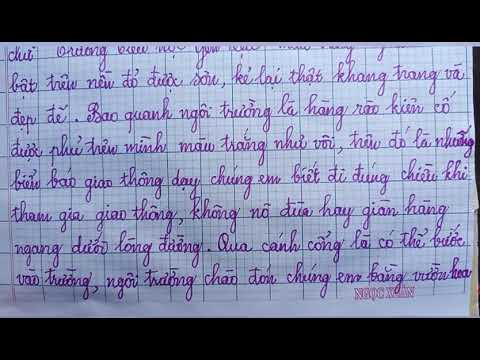 chữ Trường tiểu học
bật trên nền đỏ được sơn, kẻ lại thật khang trang và
đẹp đẽ. Bao quanh ngôi trường là hàng rào kiên cố
được phủ trên mình màu trắng như vôi, trên đó là những
biển báo giao thông dạy chúng em biết đi đúng chiều khi
tham gia giao thông, không nô đùa hay giăn hàng
ngang dưới lòng đường. Qua cánh cổng là có thể bước
vào trường, ngôi trường chào đón chúng em bằng vườn hoa
NGỌC XUÂN